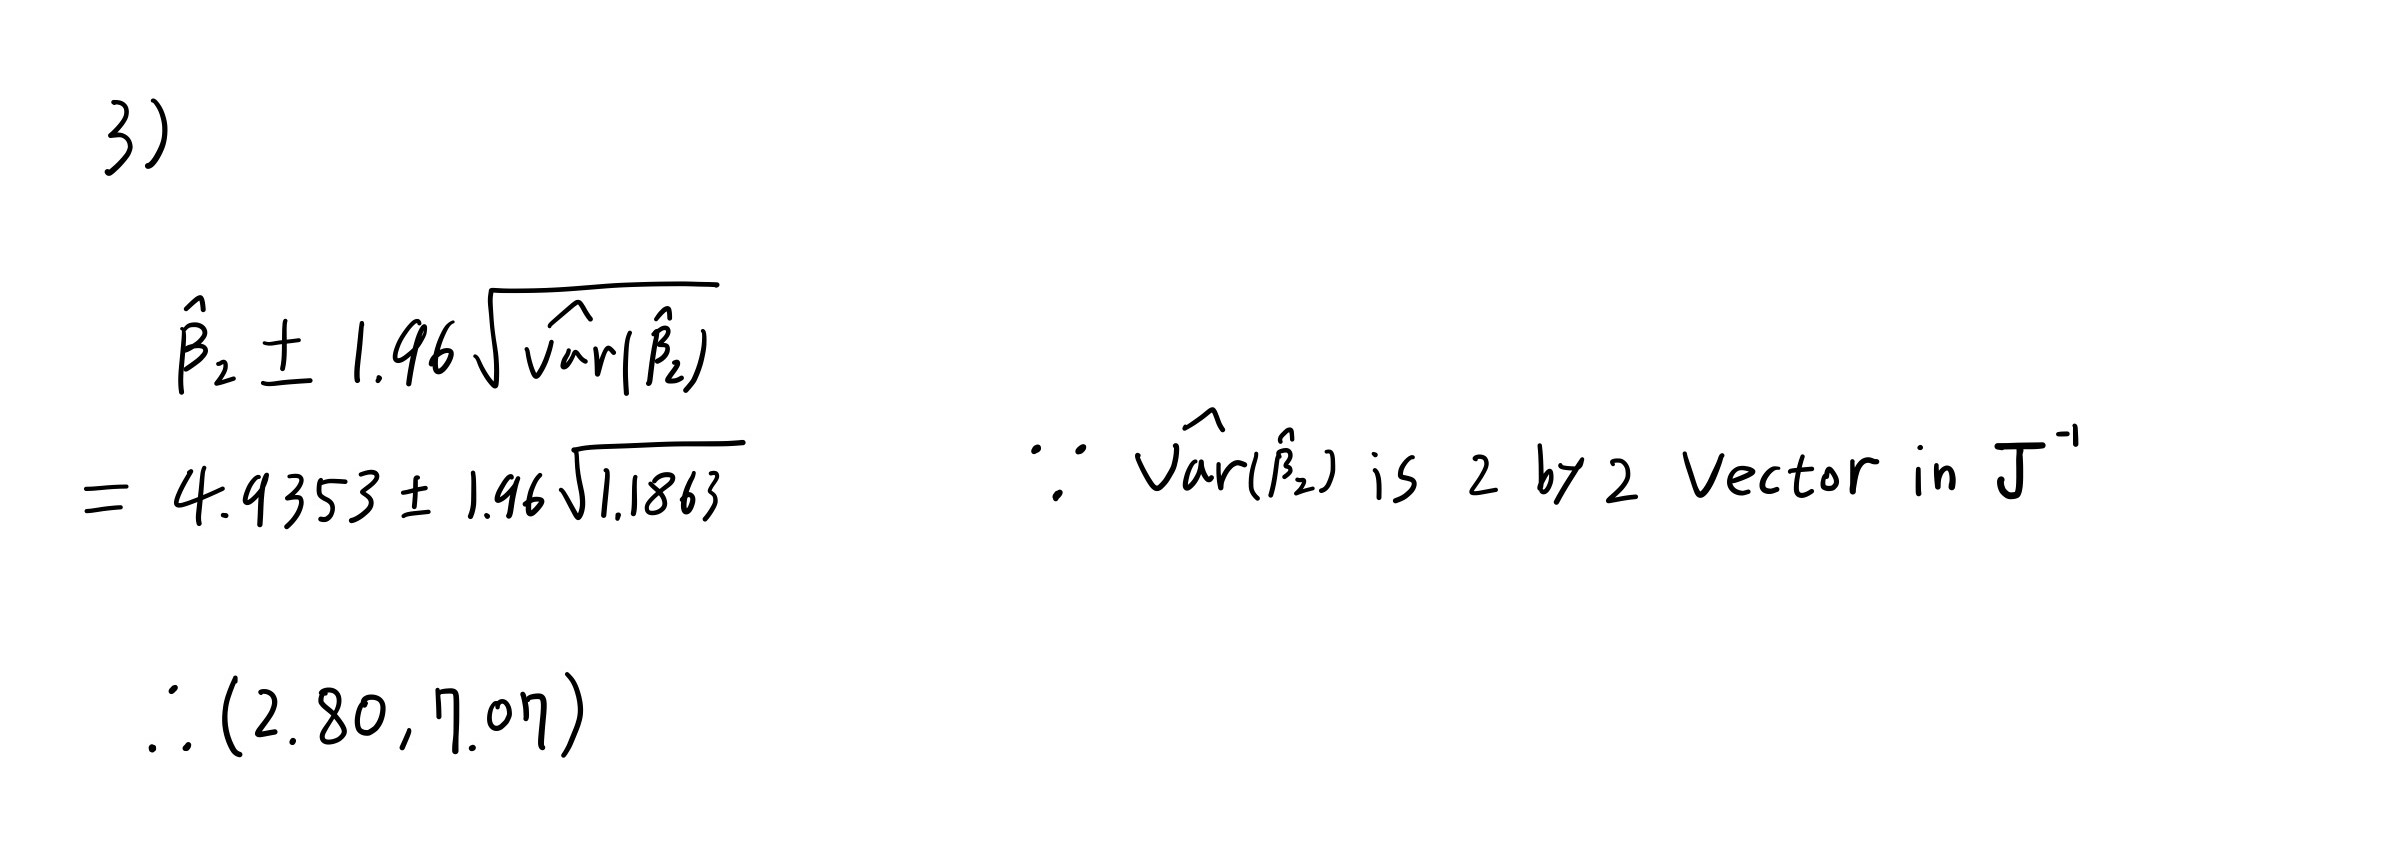 3)
β̂₂ ± 1.96√(v̂ar(β̂₂))
= 4.9353 ± 1.96√1.1863 ∵ v̂ar(β̂₂) is 2 by 2 vector in J⁻¹
∴ (2.80, 7.07)